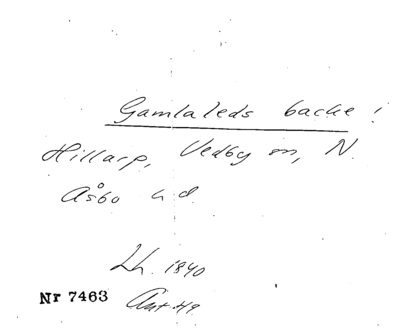 Gamlaleds backe!
Hillarp, Vedby sn, N.
Åsbo hd.
Lh. 1840
Nr 7463